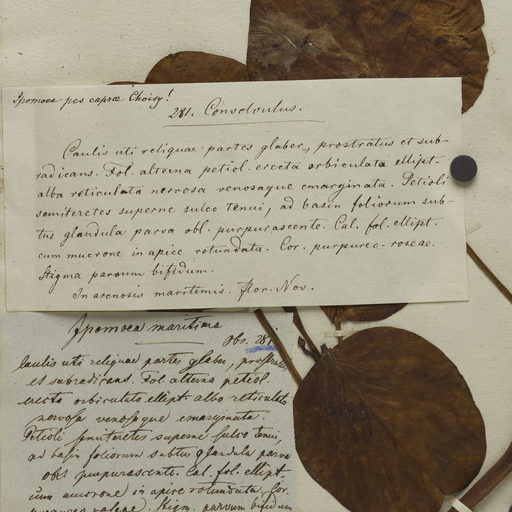 Ipomoea pes caprae Choisy!
281. Convolvulus.
Caulis uti reliquae partes glaber, prostratus et sub-
radicans. Fol. alterna petiol. erecta orbiculata ellipt.
alba reticulata nervosa venosaque emarginata. Petioli
semiteretes superne sulco tenui, ad basin foliorum sub-
tus glandula parva obl. purpurascente. Cal. fol. ellipt.
cum mucrone in apice rotundata. Cor. purpureo-roseae.
Stigma parvum bifidum.
In arenosis maritimis. flor. Nov.
Ipomoea maritima
Obs. 281
Caulis uti reliquae partes glaber, prostratus
et subradicans. Fol alterna petiol.
erecta orbiculata ellipt albo reticulato
nervosa venosaque emarginata.
Petioli semiteretes superne sulco tenui,
ad basin foliorum subtus glandula parva
obl purpurascente. Cal. fol. ellipt.
cum mucrone in apice rotundata. Cor.
Stigm. parvum bifidum